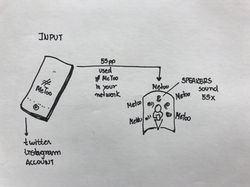 INPUT
55 pp
used
# MeToo
in your
network
# MeToo
SPEAKERS
sound
55x
MeToo
MeToo
MeToo
MeToo
MeToo
twitter
instagram
ACCOUNT